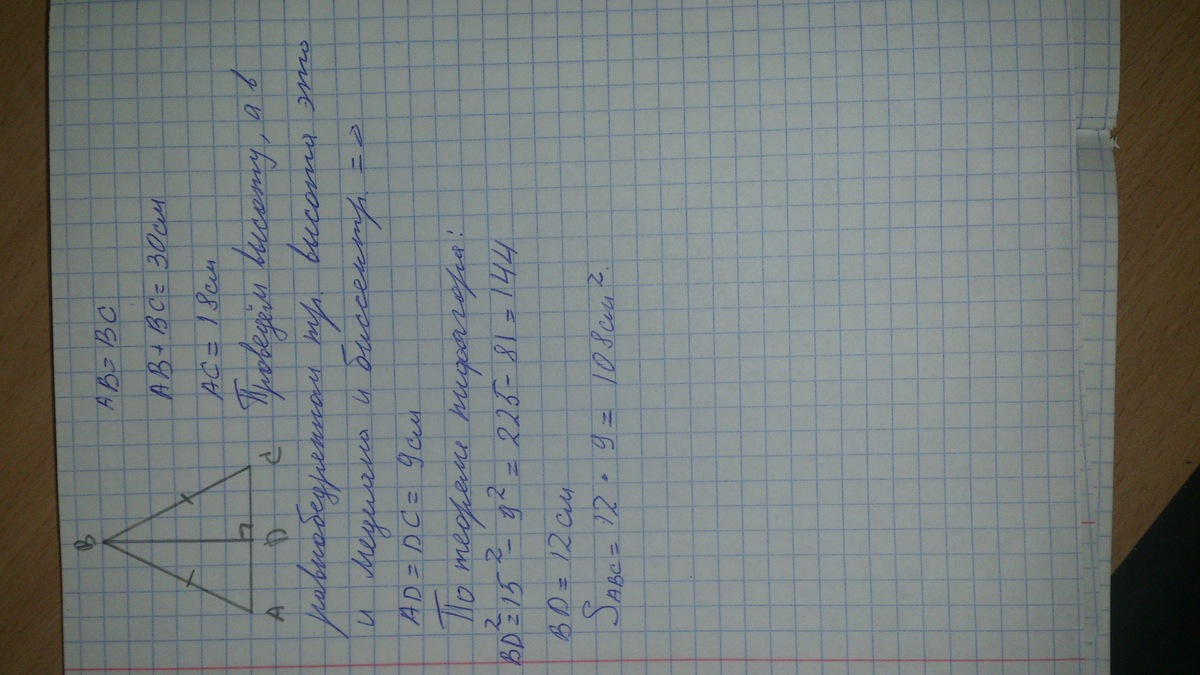 B
A D C
AB = BC
AB + BC = 30см
AC = 18см
Проведём высоту, а в
равнобедренном тр. высота это
и медиана и биссектр. =>
AD = DC = 9см
По теореме пифагора:
BD² = 15² - 9² = 225 - 81 = 144
BD = 12см
S_ABC = 12 · 9 = 108см².